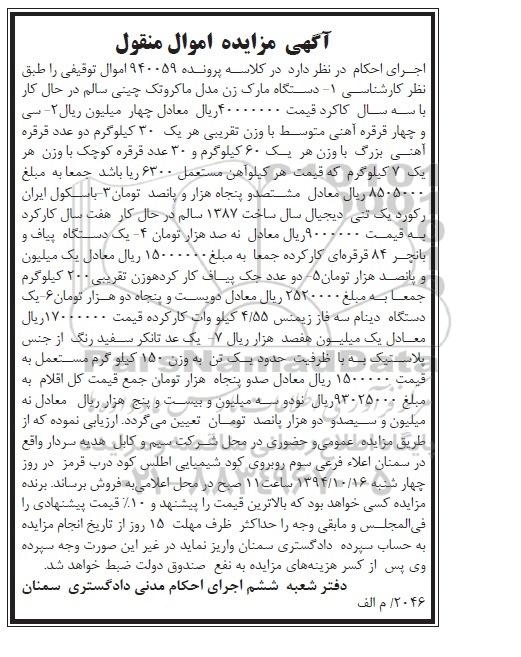 آگهی مزایده اموال منقول
اجرای احکام در نظر دارد در کلاسه پرونده ۹۴۰۰۵۹ اموال توقیفی را طبق
نظر کارشناسی ۱- دستگاه مارک زن مدل ماکروتک چینی سالم در حال کار
با سه سال کاکرد قیمت ۴۰۰۰۰۰۰۰ریال معادل چهار میلیون ریال۲- سی
و چهار قرقره آهنی متوسط با وزن تقریبی هر یک ۳۰ کیلوگرم دو عدد قرقره
آهنی بزرگ با وزن هر یک ۶۰ کیلوگرم و ۳۰ عدد قرقره کوچک با وزن هر
یک ۷ کیلوگرم که قیمت هر کیلوآهن مستعمل ۶۳۰۰ ریا باشد جمعا به مبلغ
۸۵۰۵۰۰۰ ریال معادل مشتصدو پنجاه هزار و پانصد تومان۳-باسکول ایران
رکورد یک تنی دیجیال سال ساخت ۱۳۸۷ سالم در حال کار هفت سال کارکرد
به قیمت ۹۰۰۰۰۰۰ریال معادل نه صد هزار تومان ۴- یک دستگاه پیاف و
بانچر ۸۴ قرقره‌ای کارکرده جمعا به مبلغ۱۵۰۰۰۰۰۰ ریال معادل یک میلیون
و پانصد هزار تومان۵- دو عدد جک پیاف کار کردهوزن تقریبی۲۰۰ کیلوگرم
جمعا به مبلغ۲۵۲۰۰۰۰ ریال معادل دویست و پنجاه دو هزار تومان۶-یک
دستگاه دینام سه فاز زیمنس ۴/۵۵ کیلو وات کارکرده قیمت ۱۷۰۰۰۰۰۰ریال
معادل یک میلیون هفصد هزار ریال ۷- یک عد تانکر سفید رنگ از جنس
پلاستیک به با ظرفیت حدود یک تن به وزن ۱۵۰ کیلو گرم مستعمل به
قیمت ۱۵۰۰۰۰۰ ریال معادل صدو پنجاه هزار تومان جمع قیمت کل اقلام به
مبلغ ۹۳۰۲۵۰۰۰ریال نودو سه میلیون و بیست و پنج هزار ریال معادل نه
میلیون و سیصدو دو هزار پانصد تومان تعیین می‌گردد. ارزیابی نموده که از
طریق مزایده عمومی‌و حضوری در محل شرکت سیم و کابل هدیه سردار واقع
در سمنان اعلاء فرعی سوم روبروی کود شیمیایی اطلس کود درب قرمز در روز
چهار شنبه ۱۳۹۴/۱۰/۱۶ ساعت۱۱ صبح در محل اعلامی‌به فروش برساند. برنده
مزایده کسی خواهد بود که بالاترین قیمت را پیشنهد و ۱۰٪ قیمت پیشنهادی را
فی‌المجلس و مابقی وجه را حداکثر ظرف مهلت ۱۵ روز از تاریخ انجام مزایده
به حساب سپرده دادگستری سمنان واریز نماید در غیر این صورت وجه سپرده
وی پس از کسر هزینه‌های مزایده به نفع صندوق دولت ضبط خواهد شد.
دفتر شعبه ششم اجرای احکام مدنی دادگستری سمنان
۲۰۴۶/ م الف